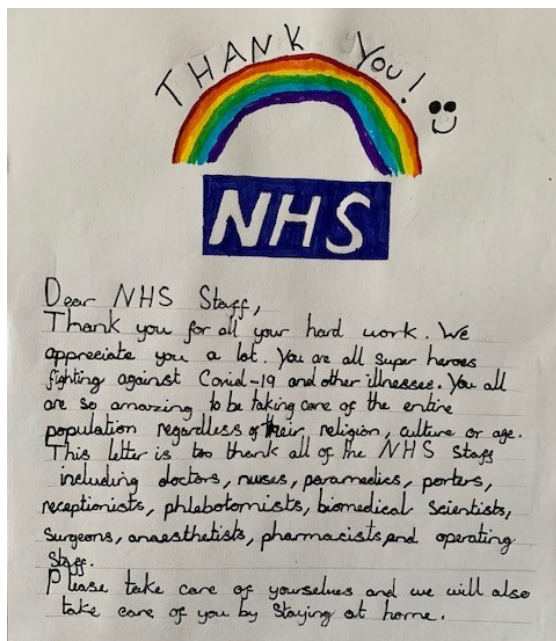 THANK YOU!
NHS
Dear NHS Staff,
Thank you for all your hard work. We
appreciate you a lot. You are all super heroes
fighting against Covid-19 and other illnesses. You all
are so amazing to be taking care of the entire
population regardless of their religion, culture or age.
This letter is too thank all of the NHS Staff
including doctors, nurses, paramedics, porters,
receptionists, phlabotomists, biomedical Scientists,
Surgeons, anaesthetists, pharmacists, and operating
Staff.
Please take care of yourselves and we will also
take care of you by Staying at home.